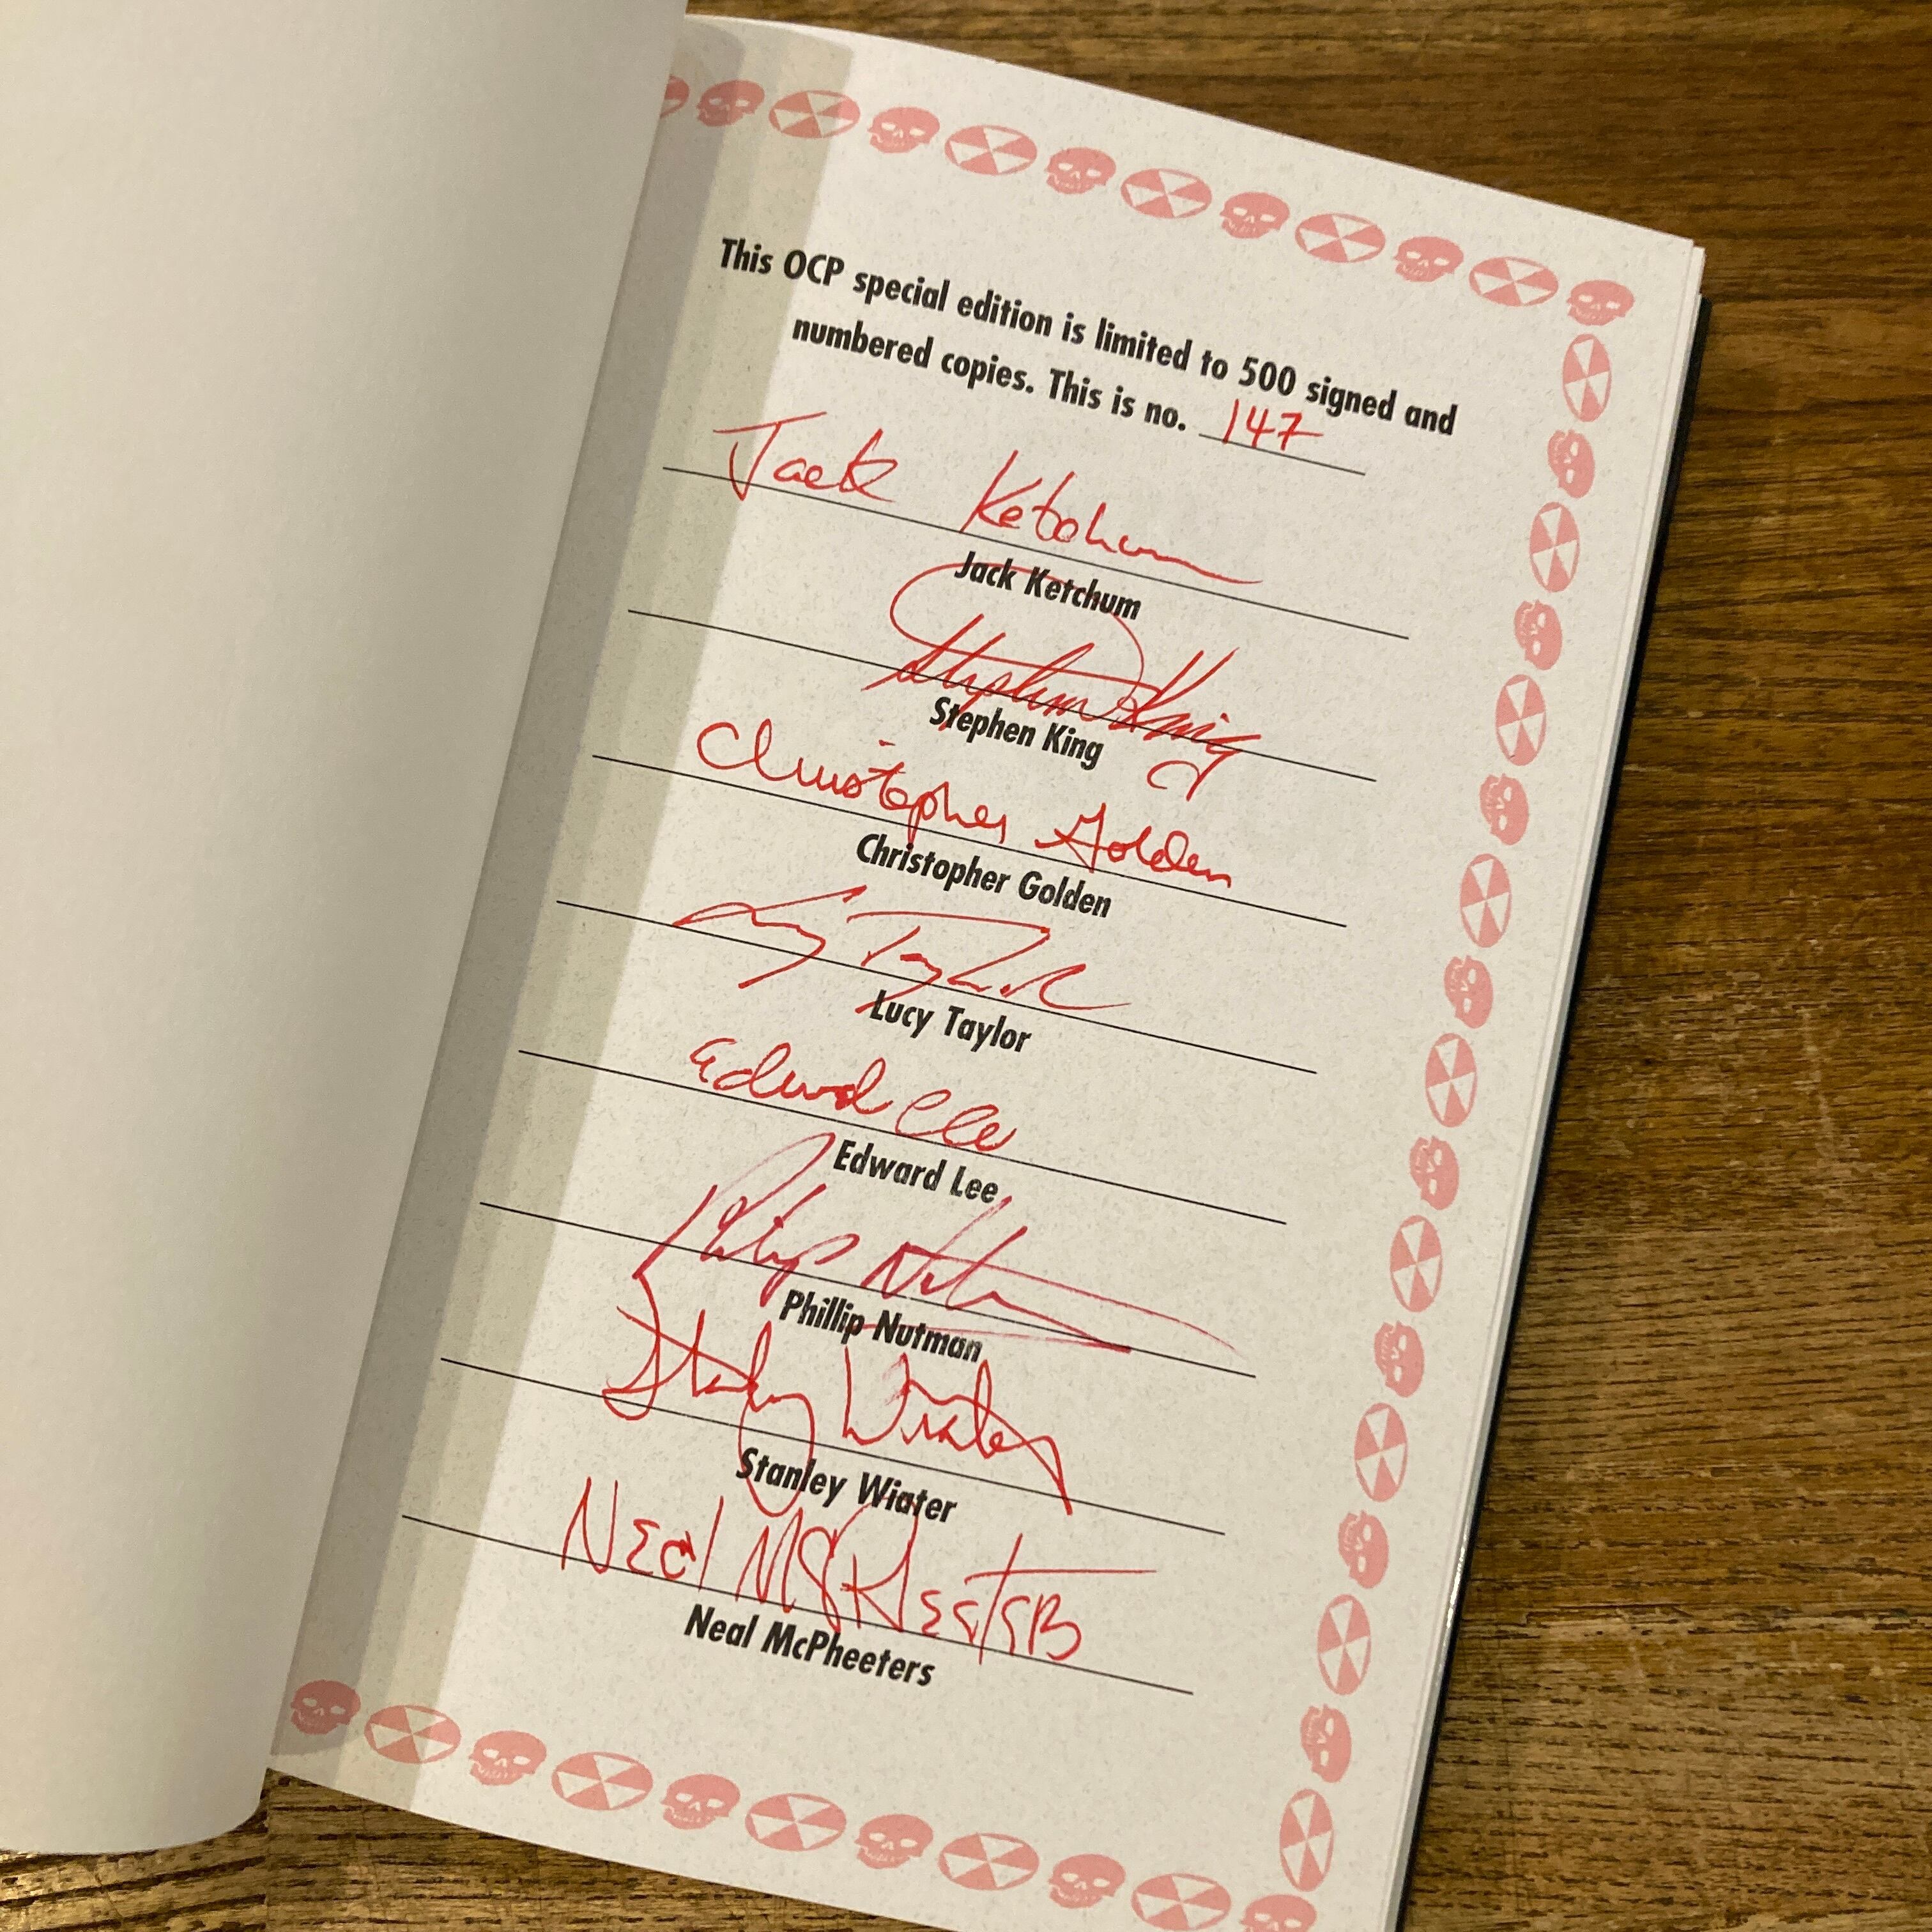 This OCP special edition is limited to 500 signed and
numbered copies. This is no. 147
Jack Ketchum
Jack Ketchum
Stephen King
Stephen King
Christopher Golden
Christopher Golden
Lucy Taylor
Lucy Taylor
Edward Lee
Edward Lee
Philip Nutman
Phillip Nutman
Stanley Wiater
Stanley Wiater
Neal McPheeters
Neal McPheeters